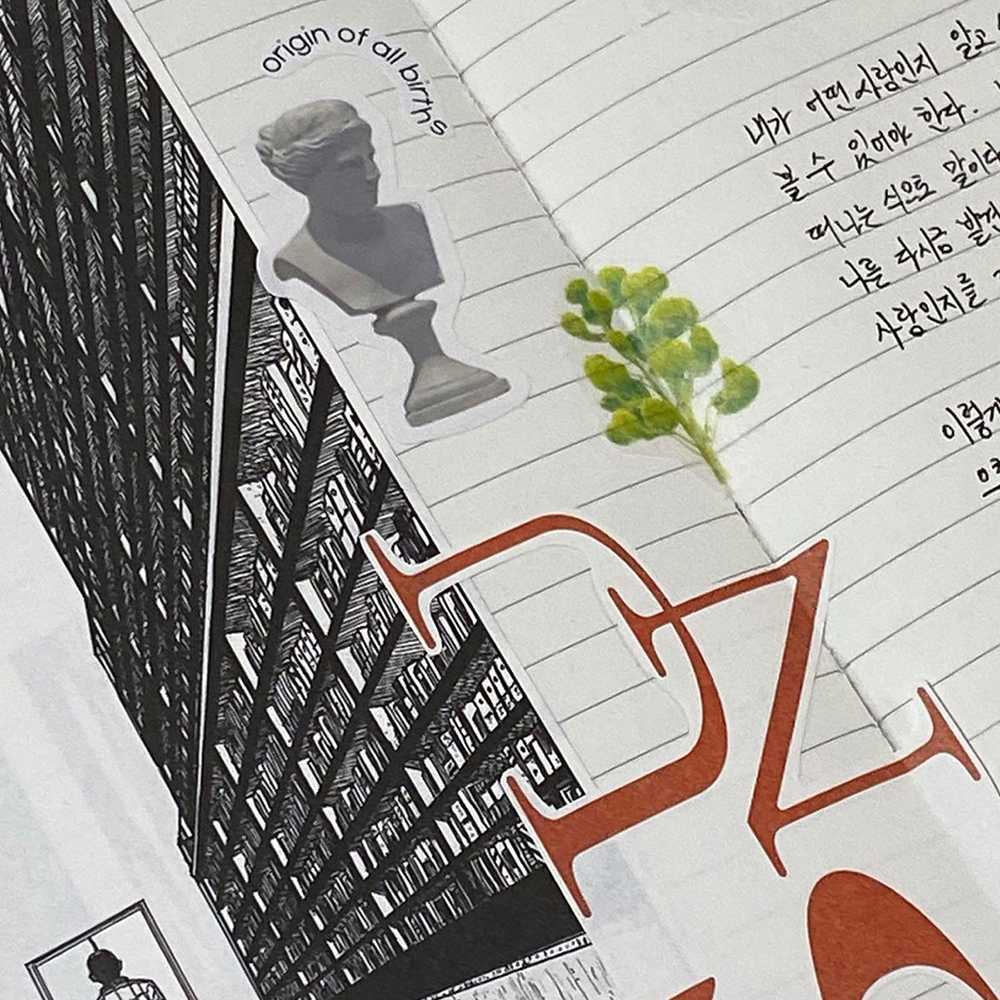 origin of all births
내가 어떤 사람인지 알고
볼 수 있어야 한다.
떠나는 식으로 말이다
나를 다시금 발견
사람인지를
이렇게
2
Z